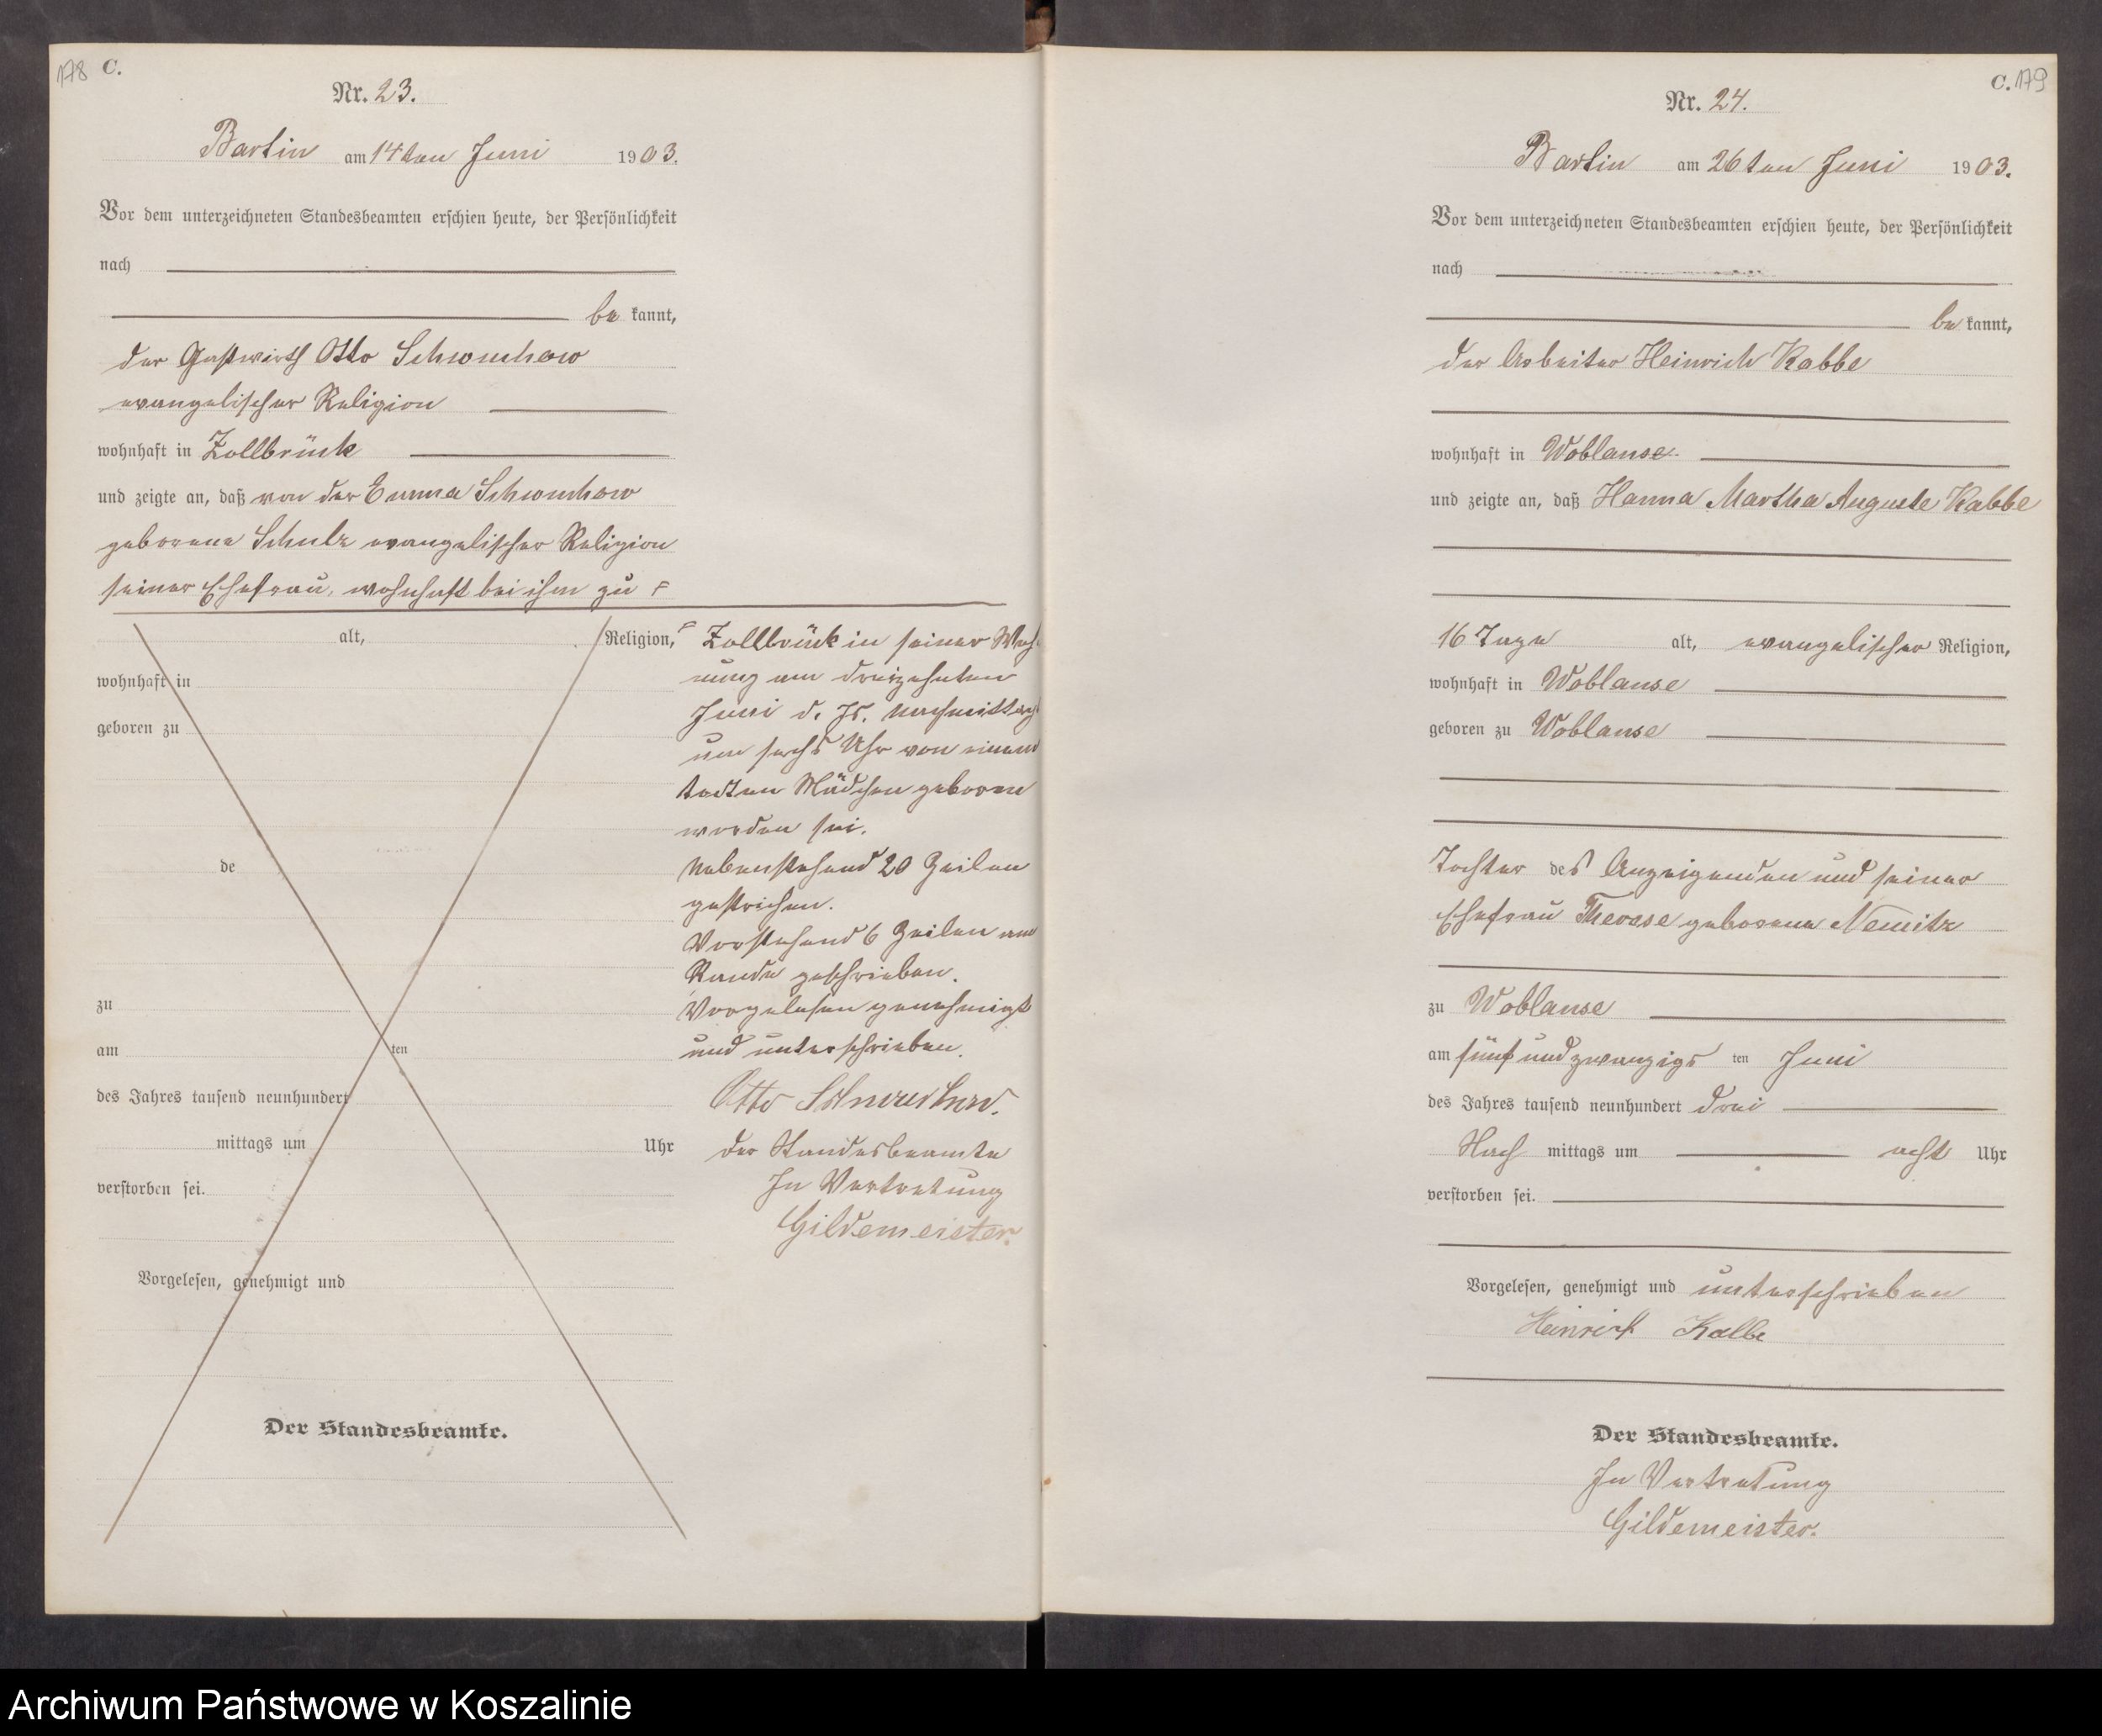 178 C.
Nr. 23.
Bartin am 14ten Juni 1903.
Vor dem unterzeichneten Standesbeamten erschien heute, der Persönlichkeit
nach
be kannt,
der Gastwirth Otto Schwuchow
evangelischer Religion
wohnhaft in Zollbrück
und zeigte an, daß von der Emma Schwuchow
geborene Schulz evangelischer Religion
seiner Ehefrau, wohnhaft bei ihm zu F
alt, Religion,
wohnhaft in
geboren zu
de
zu
am ten
des Jahres tausend neunhundert
mittags um Uhr
verstorben sei.
Vorgelesen, genehmigt und
Der Standesbeamte.
F Zollbrück in seiner Woh
nung am dreizehnten
Juni d. Js. Nachmittags
um sechs Uhr von einem
todten Mädchen geboren
worden sei.
Nebenstehend 20 Zeilen
gestrichen.
Vorstehend 6 Zeilen am
Rande geschrieben.
Vorgelesen genehmigt
und unterschrieben.
Otto Schwuchow.
Der Standesbeamte
In Vertretung
Gildemeister.
C. 179
Nr. 24.
Bartin am 26ten Juni 1903.
Vor dem unterzeichneten Standesbeamten erschien heute, der Persönlichkeit
nach
be kannt,
der Arbeiter Heinrich Kabbe
wohnhaft in Woblanse.
und zeigte an, daß Hanna Martha Auguste Kabbe
16 Tage alt, evangelischer Religion,
wohnhaft in Woblanse
geboren zu Woblanse
Tochter des Anzeigenden und seiner
Ehefrau Therese geborene Nemitz
zu Woblanse
am fünf und zwanzigs ten Juni
des Jahres tausend neunhundert drei
Nach mittags um acht Uhr
verstorben sei.
Vorgelesen, genehmigt und unterschrieben
Heinrich Kabbe
Der Standesbeamte.
In Vertretung
Gildemeister.
Archiwum Państwowe w Koszalinie